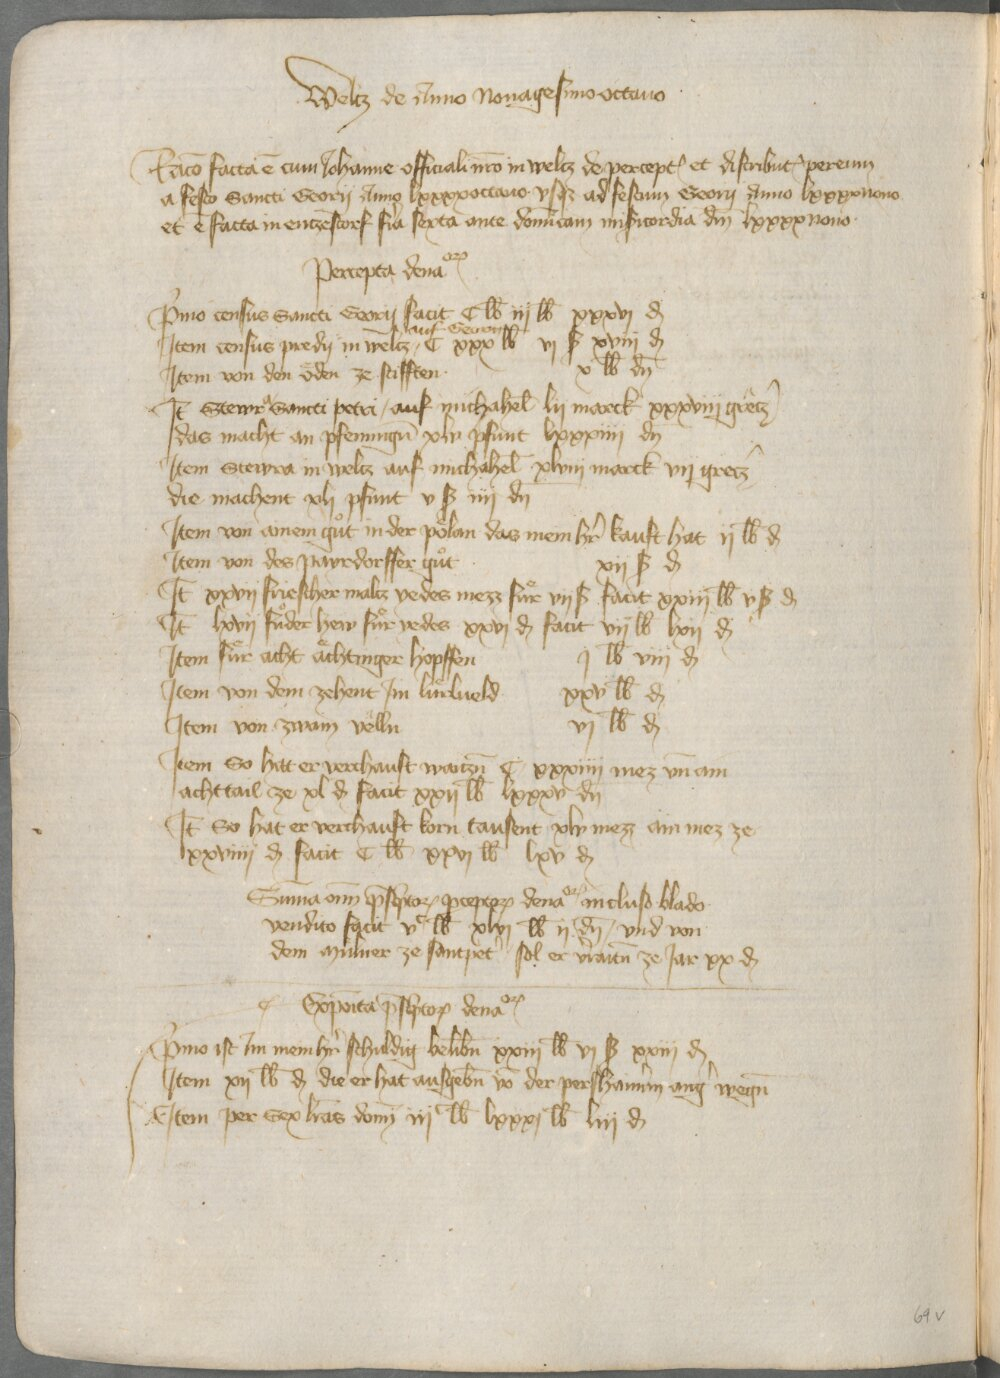 Weltz de Anno Nonagesimo octauo
Racō facta ē cum Johanne officiali nr̄o in weltz de percept̄ et distribut̄ per eum
a festo Sancti Georij Anno lxxxxoctauo vsqz ad festum Georij Anno lxxxxnono
et ē facta in entzestorf fia sexta ante domīcam misicordia dm̄ lxxxxnono
Percepta denaorꝝ
Pͥmo census Sancti Georij facit C lb iij lb xxxvi ₰
auf Georij
Item census predij in weltz C xxx lb vi ß xviij ₰
Item von den öden ze stifften x lb dn̄
It̄ Stewra Sancti petri / auf michahel lij marck xxxviij gretz̄
das macht an phenningn̄ xlv phunt lxxxiiij dn̄
Item Stewra in weltz auf michahel xlviij marck vij gretz̄
die machent xlj phunt v ß iiij dn̄
Item von ainem gůt in der pölan das mein hr̄ kauft hat ij lb ₰
Item von des pawrdorffer gůt xij ß ₰
It̄ xxvij friescher maltz yedes mezz fuͤr vij ß facit xxiij lb v ß ₰
It̄ lxvij fuͤder hew fuͤr yedes xxvi ₰ facit vij lb lxij ₰
Item fuͤr acht aͤchtinger hopffen j lb viij ₰
Item von dem zehent im luͤrlueld xxv lb ₰
Item von zwain velln vj lb ₰
Item So hat er verchauft waitzn̄ C xxxiiij mez vn̄ ain
achttail ze xl ₰ facit xxij lb lxxxv dn̄
It̄ So hat er verchauft korn tausent xlv mezz ain mez ze
xxviiij ₰ facit C lb xxvi lb lxv ₰
Suma om̄ p̄sc̄ptorꝝ p̄ceptorꝝ denaorꝝ incluso blado
vendito facit vC lb xlvi lb ij dn̄ / vnd von
dem mulner ze santpet̄ sol er v̄raitn̄ ze jar xx ₰
Expōita p̄sc̄ptorꝝ denaorꝝ
Pͥmo ist im mein hr̄ schuldig belibn̄ xxiij lb vj ß xxiij ₰
Item xij lb ₰ die er hat ausgebn̄ vō der pershaimin ... wegn̄
Item per Sex lr̄as domī iijC lb lxxxj lb liij ₰
69v